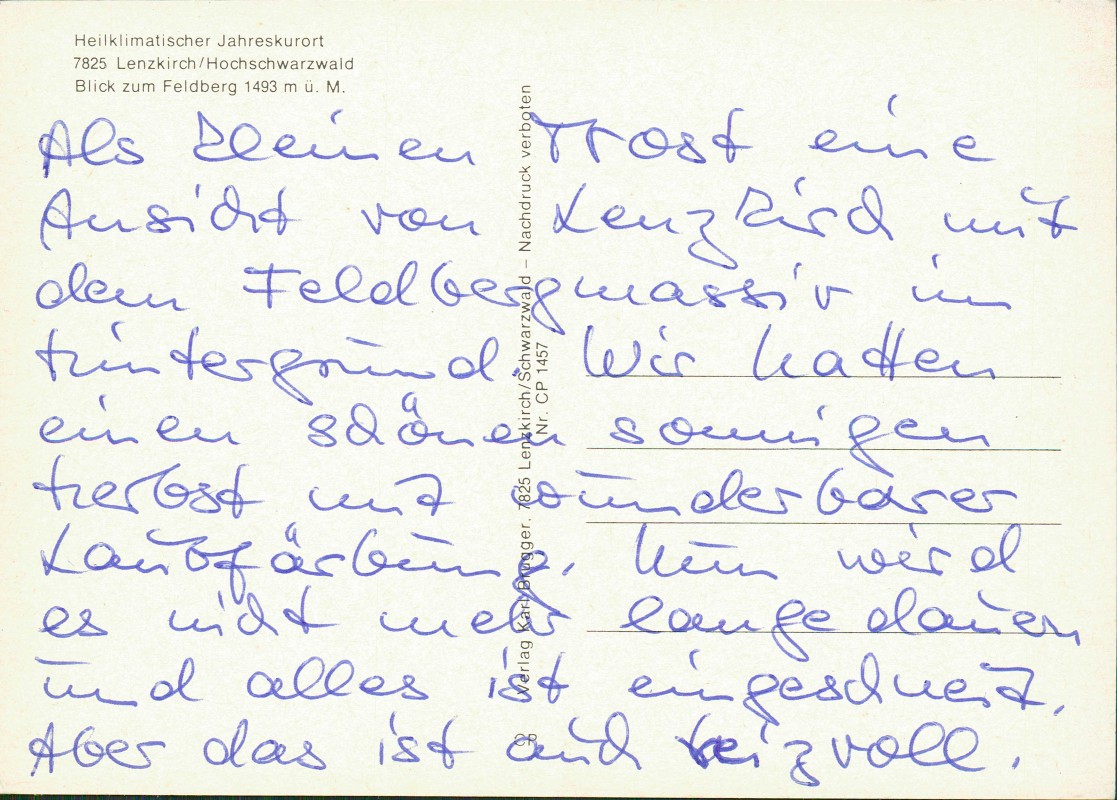 Heilklimatischer Jahreskurort
7825 Lenzkirch/Hochschwarzwald
Blick zum Feldberg 1493 m ü. M.
Als kleinen Trost eine
Ansicht von Lenzkirch mit
dem Feldbergmassiv im
Hintergrund. Wir hatten
einen schönen sonnigen
Herbst mit wunderbarer
Laubfärbung. Nun wird
es nicht mehr lange dauern
und alles ist eingeschneit.
Aber das ist auch reizvoll.
Verlag Karl Brugger, 7825 Lenzkirch/Schwarzwald – Nachdruck verboten
Nr. CP 1457